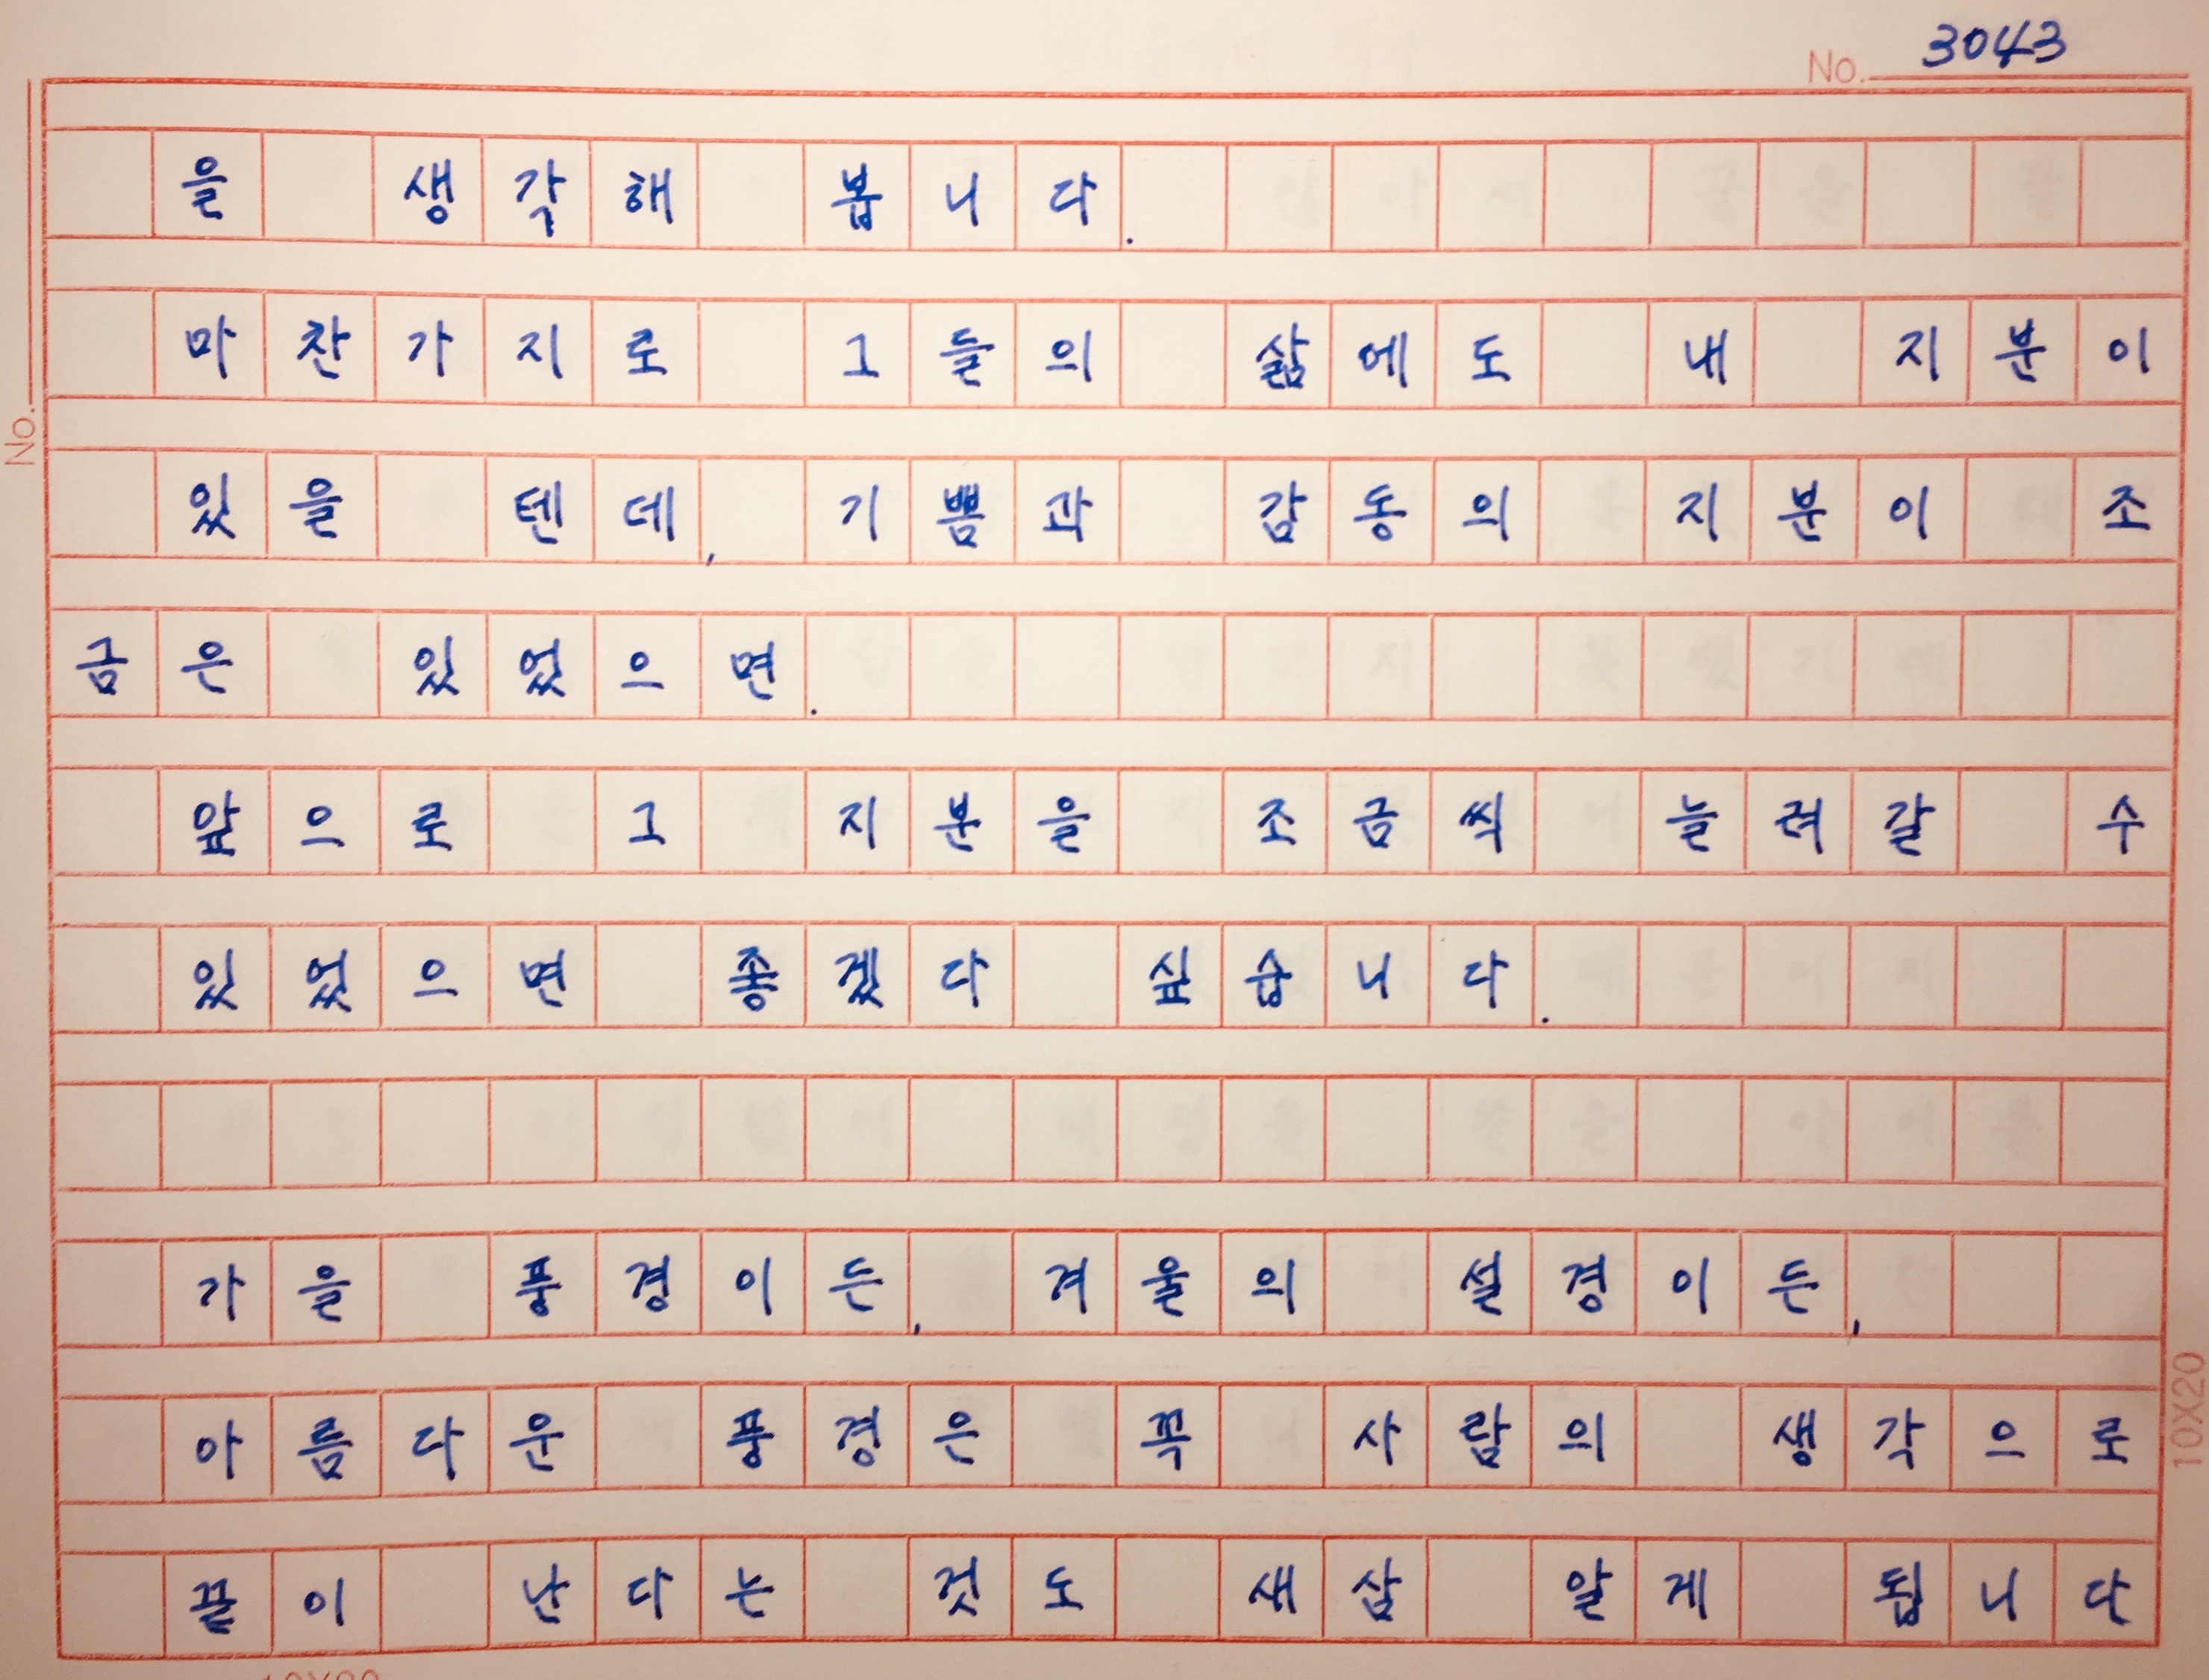 No. 3043
을 생각해 봅니다.
마찬가지로 그들의 삶에도 내 지분이
있을 텐데, 기쁨과 감동의 지분이 조
금은 있었으면.
앞으로 그 지분을 조금씩 늘려갈 수
있었으면 좋겠다 싶습니다.
가을 풍경이든, 겨울의 설경이든,
아름다운 풍경은 꼭 사람의 생각으로
끝이 난다는 것도 새삼 알게 됩니다
No.
10X20